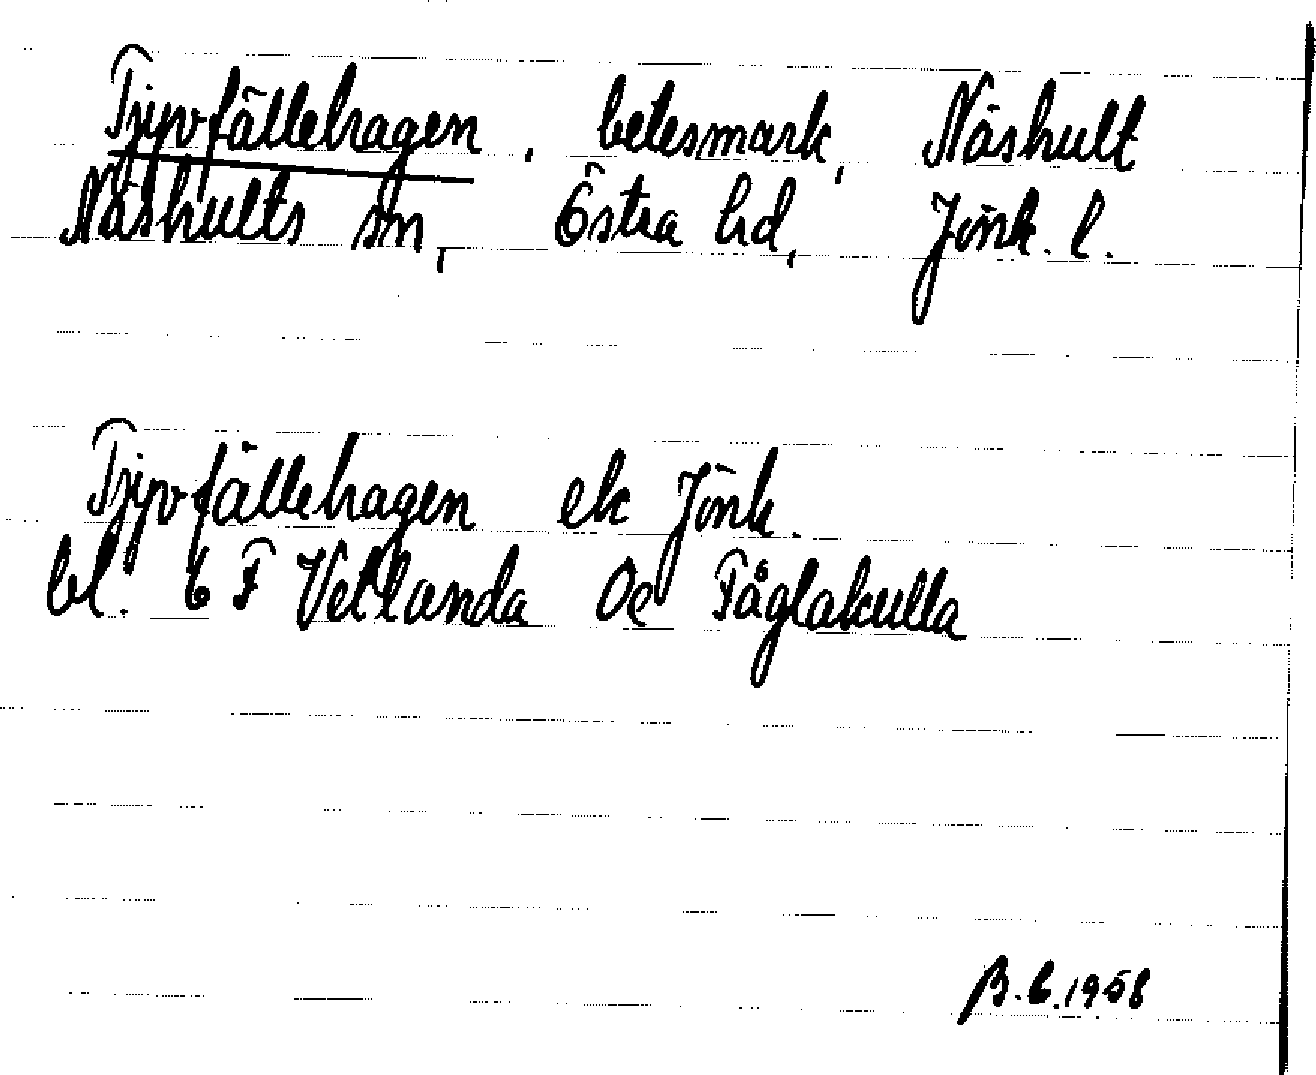 Tjyvfällehagen, betesmark, Näshult
Näshults sn, Östra hd, Jönk. l.
Tjyvfällehagen ek Jönk.
bl. 6 F Vetlanda Oe Fåglakulla
B.E.1958